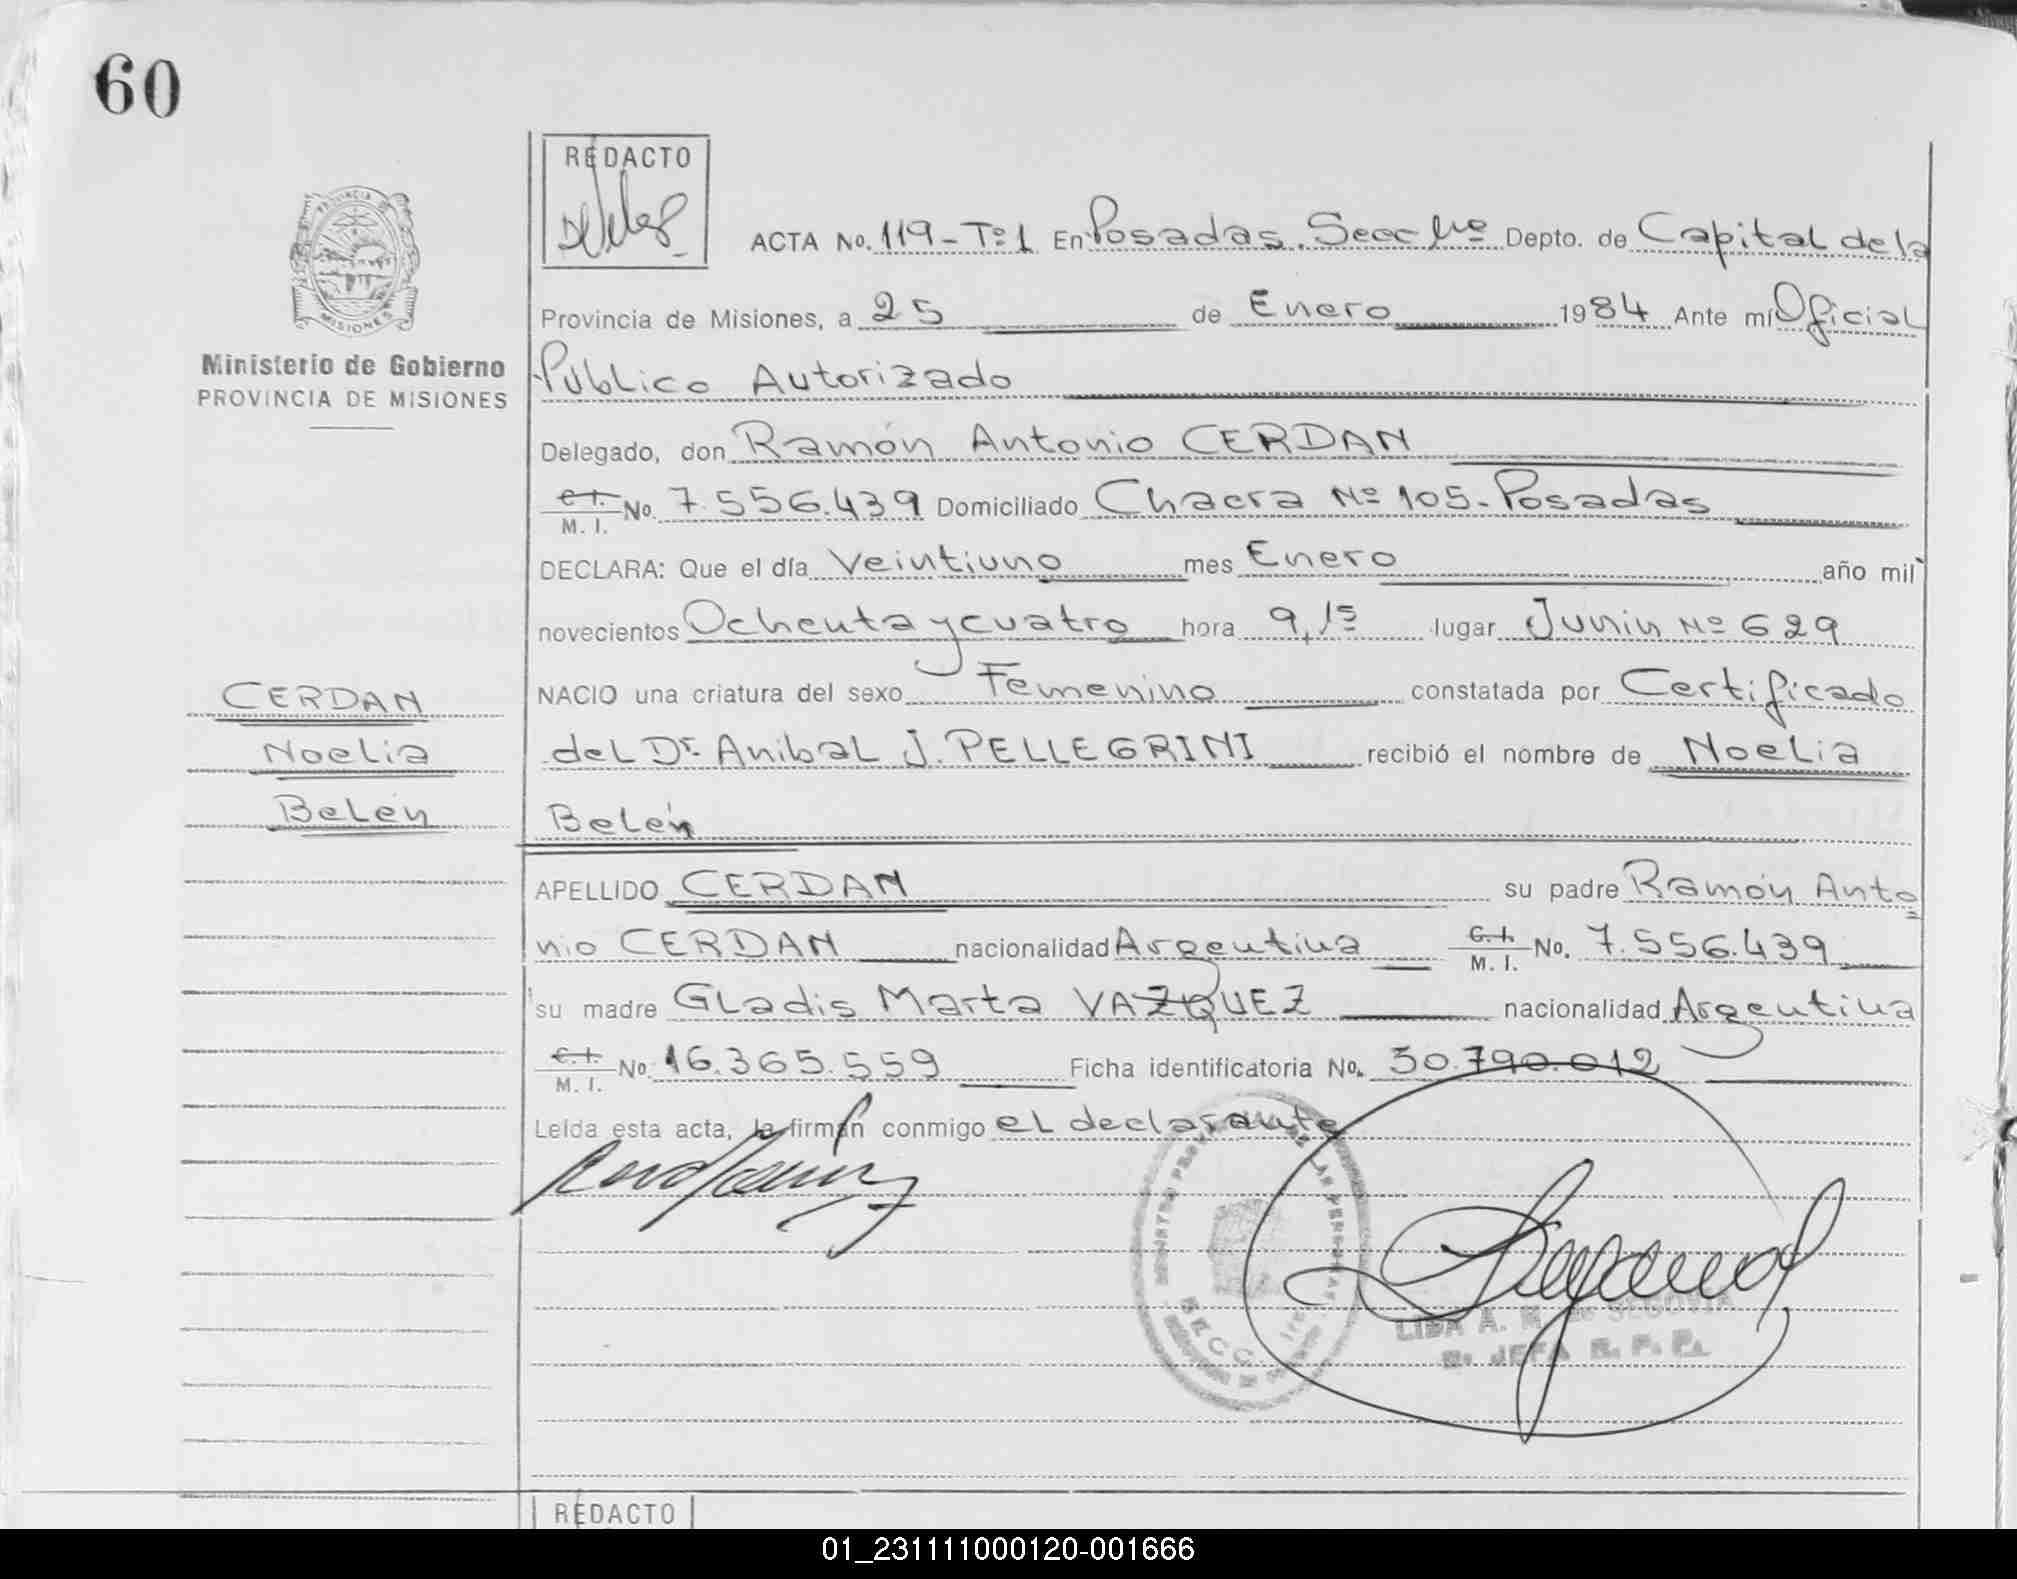 60
REDACTO
ACTA No. 119 - Tº 1 En Posadas. Secc Depto. de Capital de la
PROVINCIA DE
MISIONES
Provincia de Misiones, a 25 de Enero 1984 Ante mí Oficial
Ministerio de Gobierno
PROVINCIA DE MISIONES
Público Autorizado
Delegado, don Ramón Antonio CERDAN
C.I. M. I. No. 7.556.439 Domiciliado Chacra Nº 105 - Posadas
DECLARA: Que el día Veintiuno mes Enero año mil
novecientos Ochenta y cuatro hora 9,15 lugar Junin Nº 629
NACIO una criatura del sexo Femenino constatada por Certificado
CERDAN
Noelia
Belén
del Dr. Anibal J. PELLEGRINI recibió el nombre de Noelia
Belén
APELLIDO CERDAN su padre Ramón Anto
nio CERDAN nacionalidad Argentina C.I. M. I. No. 7.556.439
su madre Gladis Marta VAZQUEZ nacionalidad Argentina
C.I. M. I. No. 16.365.559 Ficha identificatoria No. 30.790.012
Leída esta acta, la firman conmigo el declarante
LIDA A. de SEGOVIA
JEFA R. P. P.
REDACTO
01_231111000120-001666